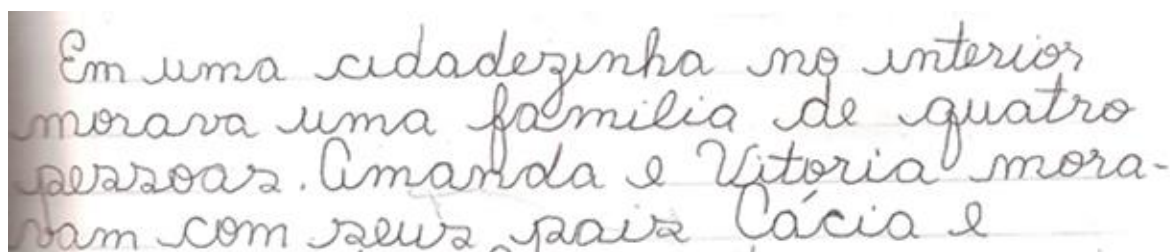 Em uma cidadezinha no interior
morava uma familia de quatro
pessoas. Amanda e Vitoria mora-
vam com seus pais Cácia e